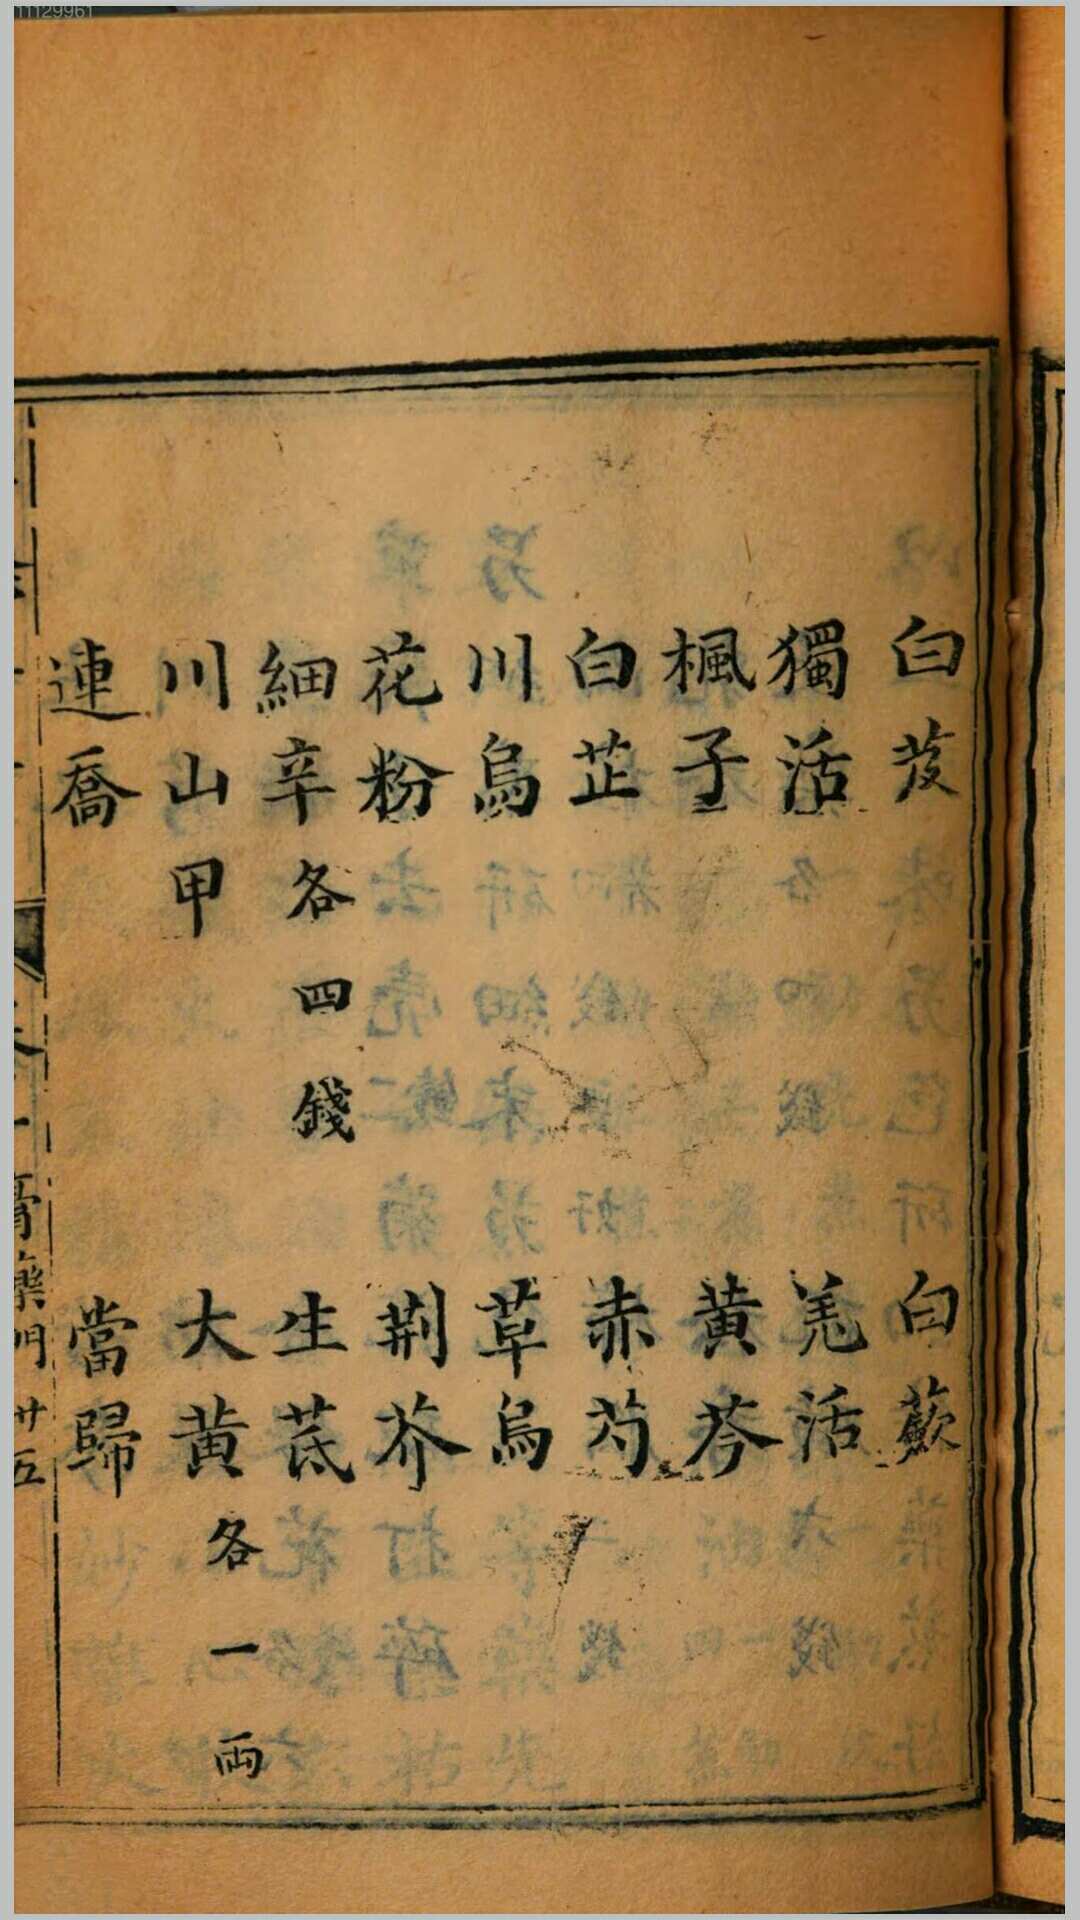 11129961
白芨 白蘞
獨活 羌活
楓子 黄芩
白芷 赤芍
川烏 草烏
花粉 荆芥
細辛各四錢 生芪
川山甲 大黄各一両
連喬 當歸
膏藥門 廿五